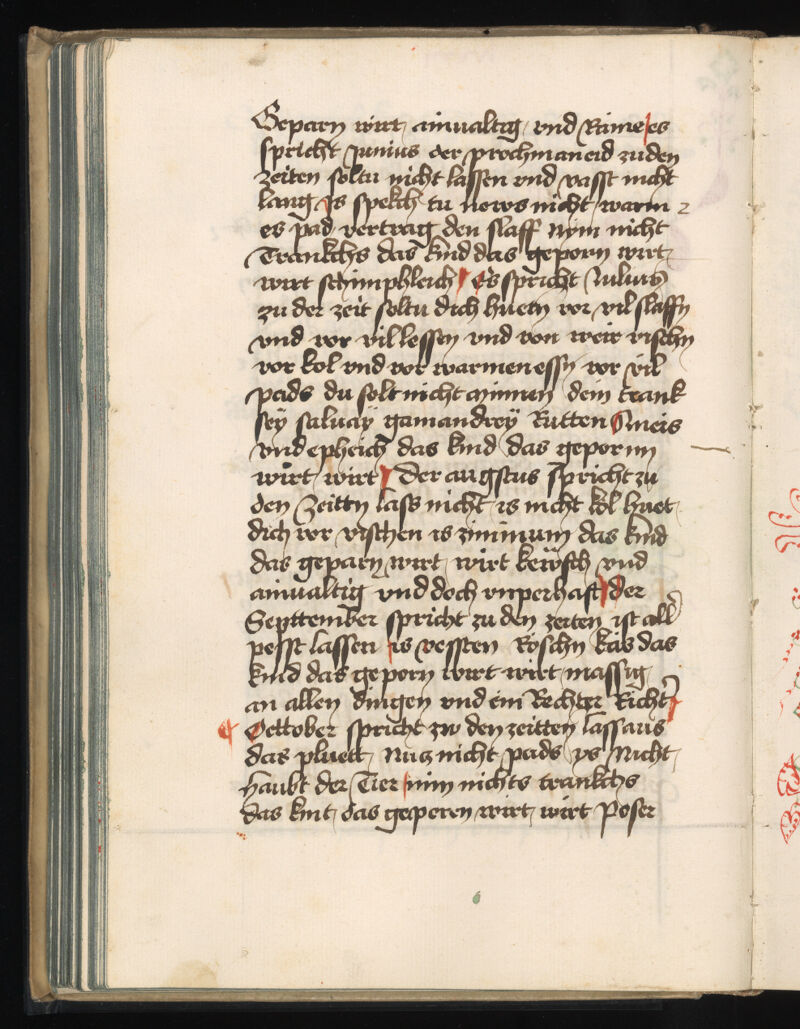 Geparn wirt ainualtig vnd Rame es
spricht Junius der prochmaneid zu den
zeiten soltu nicht lassen vnd vasst nicht
lang is spekch tu nows nicht warm
es pad vertrag den slaff nym nicht
Trankchs das kind das geporn wirt
wirt schimphleich Es spricht Julius
zu der zeit soltu dich hueten vor vil slaffn
vnd vor vil lessen vnd von weir vischn
vor kol vnd vor warmen essn vor vil
pads du solt nicht mynnen dein trank
sey saluay gamandrey Rutten Ameis
vnd epheich das kind das gepornn
wirt wirt Der augstus spricht zu
den zeittn lass nicht is nicht kol huet
dich vor vischen is zimmum das kind
das geparn wirt wirt kewsch vnd
ainualtig vnd doch vnperhaft der
Septtember spricht zu den zeiten ist all
pesst lassen is vessten Roschn kas das
kind das geporn wirt wirt massig
an allen dingen vnd ein Rechter Richter
October spricht zw den zeitten lass aus
das pluett Nucz nicht pads ys nicht
haubt der Tier nim nichts trankchs
das kint das geporn wirt wirt poser